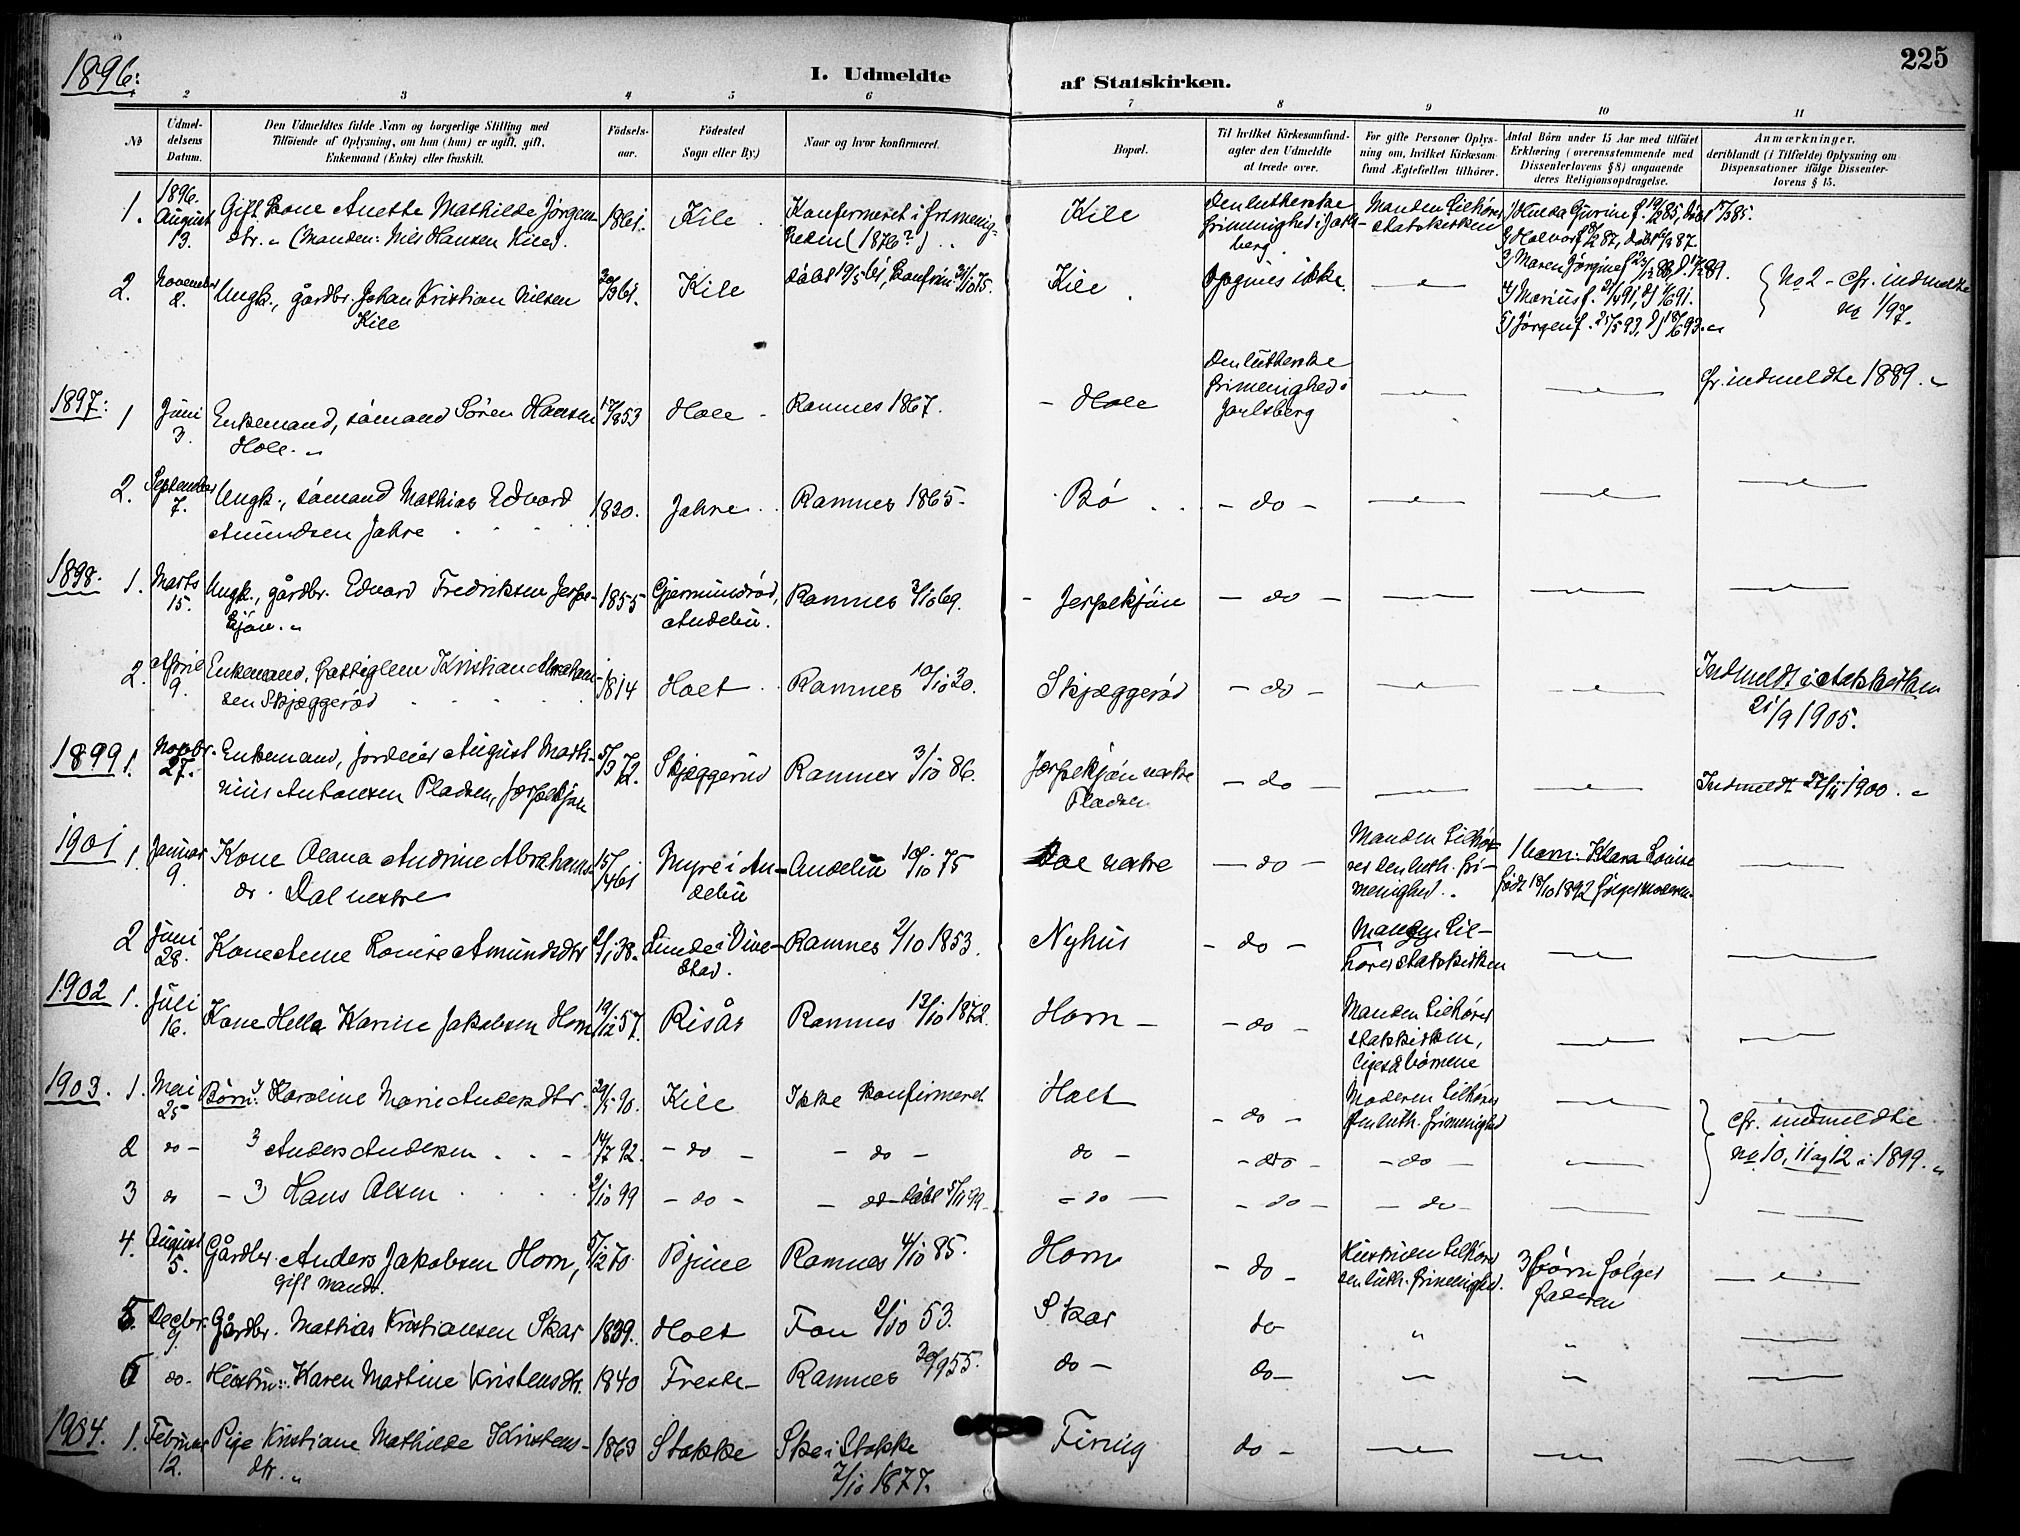 225
1896:
I. Udmeldte af Statskirken.
1 2 3 4 5 6 7 8 9 10 11
No
Udmeldelsens Datum.
Den Udmeldtes fulde Navn og borgerlige Stilling med
Tilföiende af Oplysning, om han (hun) er ugift, gift,
Enkemand (Enke) eller fraskilt.
Födselsaar.
Födested
Sogn eller By.)
Naar og hvor konfirmeret.
Bopæl.
Til hvilket Kirkesamfund
agter den Udmeldte
at træde over.
For gifte Personer Oplysning
om, hvilket Kirkesamfund
Ægtefællen tilhörer.
Antal Börn under 15 Aar med tilföiet
Erklæring (overensstemmende med
Dissenterlovens § 8) angaaende
deres Religionsopdragelse.
Anmærkninger,
deriblandt (i Tilfælde) Oplysning om
Dispensationer ifölge Dissenterlovens § 15.
1. 1896. August 13. Gift Kone Anette Mathilde Jørgensdtr. (Manden: Nils Hansen Kile). 1861. Kile Konfirmeret i frimenigheden (1876?) Kile Den lutherske frimenighed i Jarlsberg Manden tilhører statskirken
3) Maren Jørgine
4) Marius f.
5) Jørgen f. 25/5 93, 18/6 93.
2. November 2. Ungk., gårdbr. Johan Kristian Nilsen Kile Kile døbt 19/5 61, konfirm. Kile Opgives ikke. No 2 - cfr. indmeldte no 1/97.
1897: 1 Juni 3. Enkemand, sømand Søren Hansen Hole. 53 Hole Ramnes 1867. Hole Den lutherske frimenighed i Jarlsberg cfr. indmeldte 1889.
2. September 7. Ungk., sømand Mathias Edvard Amundsen Jahre Jahre Ramnes 1865. Bø - do -
1898. 1. Marts 15. Ungk., gårdbr. Edvard Fredriksen Jerpekjøn. 1855 Gjermundrød, Andebu. Ramnes 3/10 69. Jerpekjøn - do -
2. April 9. Enkemand, fattiglem Kristian Abrahamsen Skjæggerød 1814 Holt Ramnes 10/10 30. Skjæggerød - do - Indmeldt i statskirken 21/9 1905.
1899 1. Novbr. 27. Enkemand, jordeier August Martinius Antonsen Pladsen, Jerpekjøn 72. Skjæggerud Ramnes 3/10 86. Jerpekjøn nestre Pladsen - do - Indmeldt 27/11 1900.
1901 1. Januar 9. Kone Olana Andrine Abrahamsdr. Dal nestre 61 Myre i Andebu Andebu 10/10 75 Dal nestre - do - Manden tilhører den luth. frimenighed. 1 barn: Klara Lovise født 18/10 1892 følger moderen.
2 Juni 28. Kone Anne Lovise Amundsdtr 38. Linde i Vivestad. Ramnes 2/10 1853. Nyhus - do - Manden tilhører statskirken
1902 1. Juli 16. Kone Hella Karine Jakobsen Horn 19/12 57. Risås Ramnes 13/10 1872. Horn - - do - Manden tilhører statskirken, ligeså børnene
1903. 1. Mai 25 Børn: 1) Karoline Marie Andersdtr. 90. Kile Ikke konfirmeret Holt - do - Moderen tilhører den luth. frimenighed cfr. indmeldte no 10, 11 og 12 i 1899.
2 do - Anders Andersen 14/7 92. - do - - do - do - - do - - do -
3 do - 3) Hans Olsen 2/10 99 - do - - do - døbt 5/11 99. - do - - do - - do -
4. August 5. Gårdbr. Anders Jakobsen Horn, gift mand. 5/12 70. Bjune Ramnes 4/10 85. Horn - do - Hustruen tilhører den luth. frimenighed. 3 børn følger faderen
5. Decbr. 9. Gårdbr. Mathias Kristiansen Skar 1839. Holt Fon 2/10 53. Skar do
6 do. Hustru: Karen Martine Kristensdtr. 1840 Freste Ramnes 30/9 55. do - do -
1904. 1. Februar 12. Pige Kristiane Mathilde Kristensdtr. 1863 Stokke Skee i Stokke 7/10 1877. Firing do -